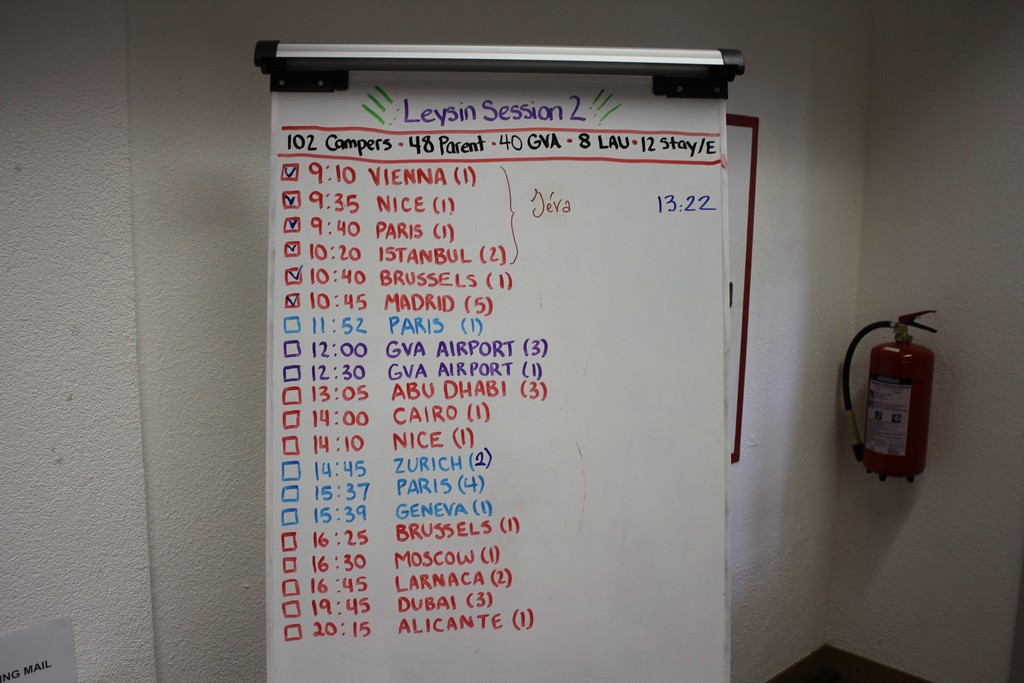 Leysin Session 2
102 Campers · 48 Parent · 40 GVA · 8 LAU · 12 Stay/E
9:10 VIENNA (1)
9:35 NICE (1) Jéva 13:22
9:40 PARIS (1)
10:20 ISTANBUL (2)
10:40 BRUSSELS (1)
10:45 MADRID (5)
11:52 PARIS (1)
12:00 GVA AIRPORT (3)
12:30 GVA AIRPORT (1)
13:05 ABU DHABI (3)
14:00 CAIRO (1)
14:10 NICE (1)
14:45 ZURICH (2)
15:37 PARIS (4)
15:39 GENEVA (1)
16:25 BRUSSELS (1)
16:30 MOSCOW (1)
16:45 LARNACA (2)
19:45 DUBAI (3)
20:15 ALICANTE (1)
ING MAIL